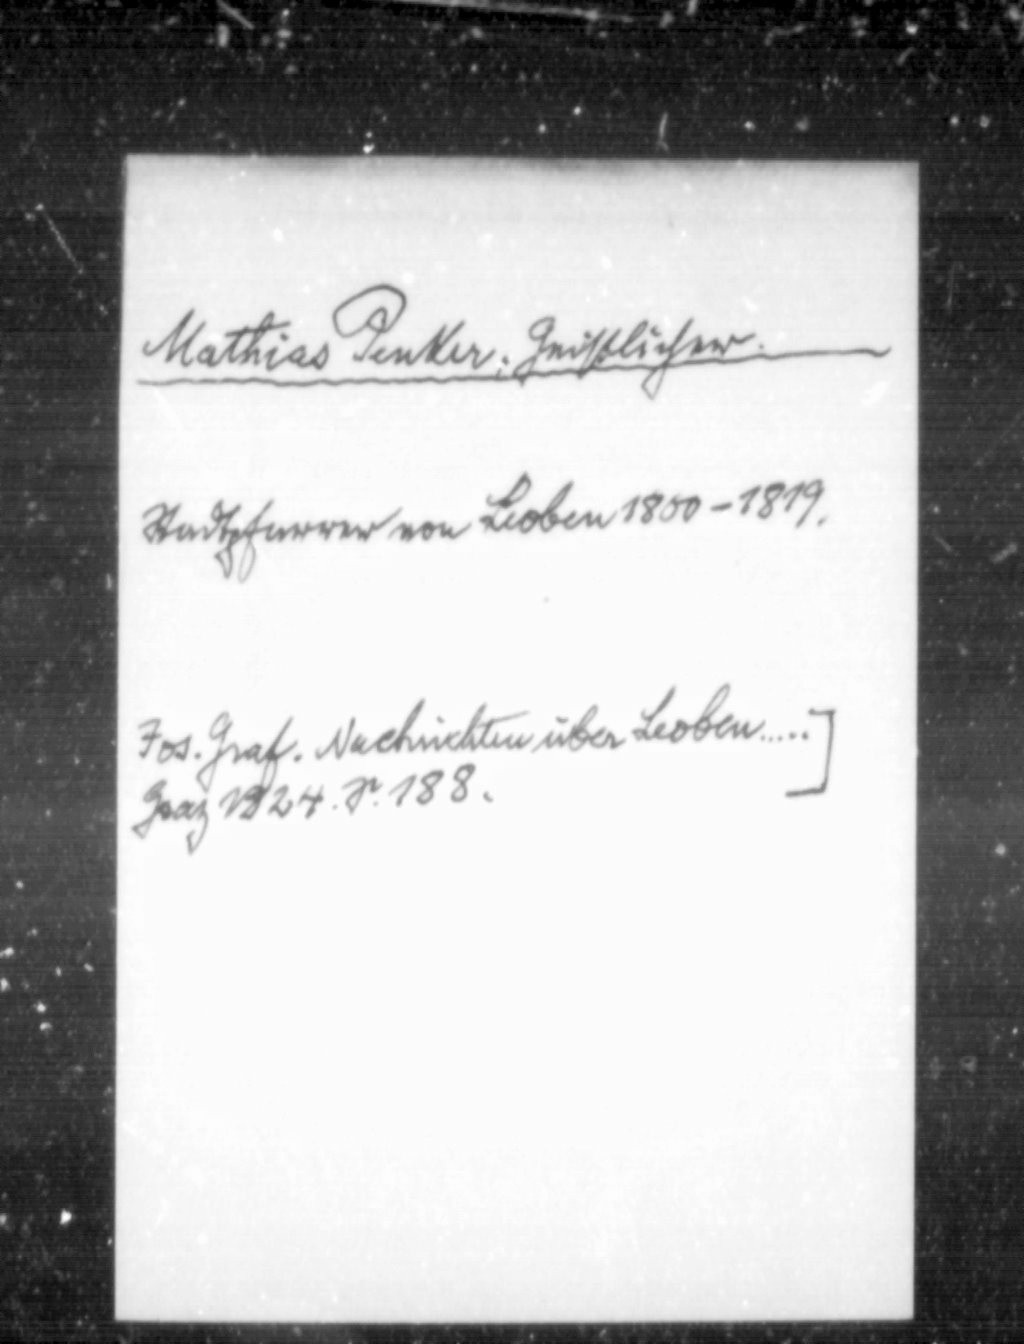 Mathias Penker; Geistlicher.
Stadtpfarrer von Leoben 1800-1819.
Jos. Graf. Nachrichten über Leoben.....]
Graz 1824. S. 188.